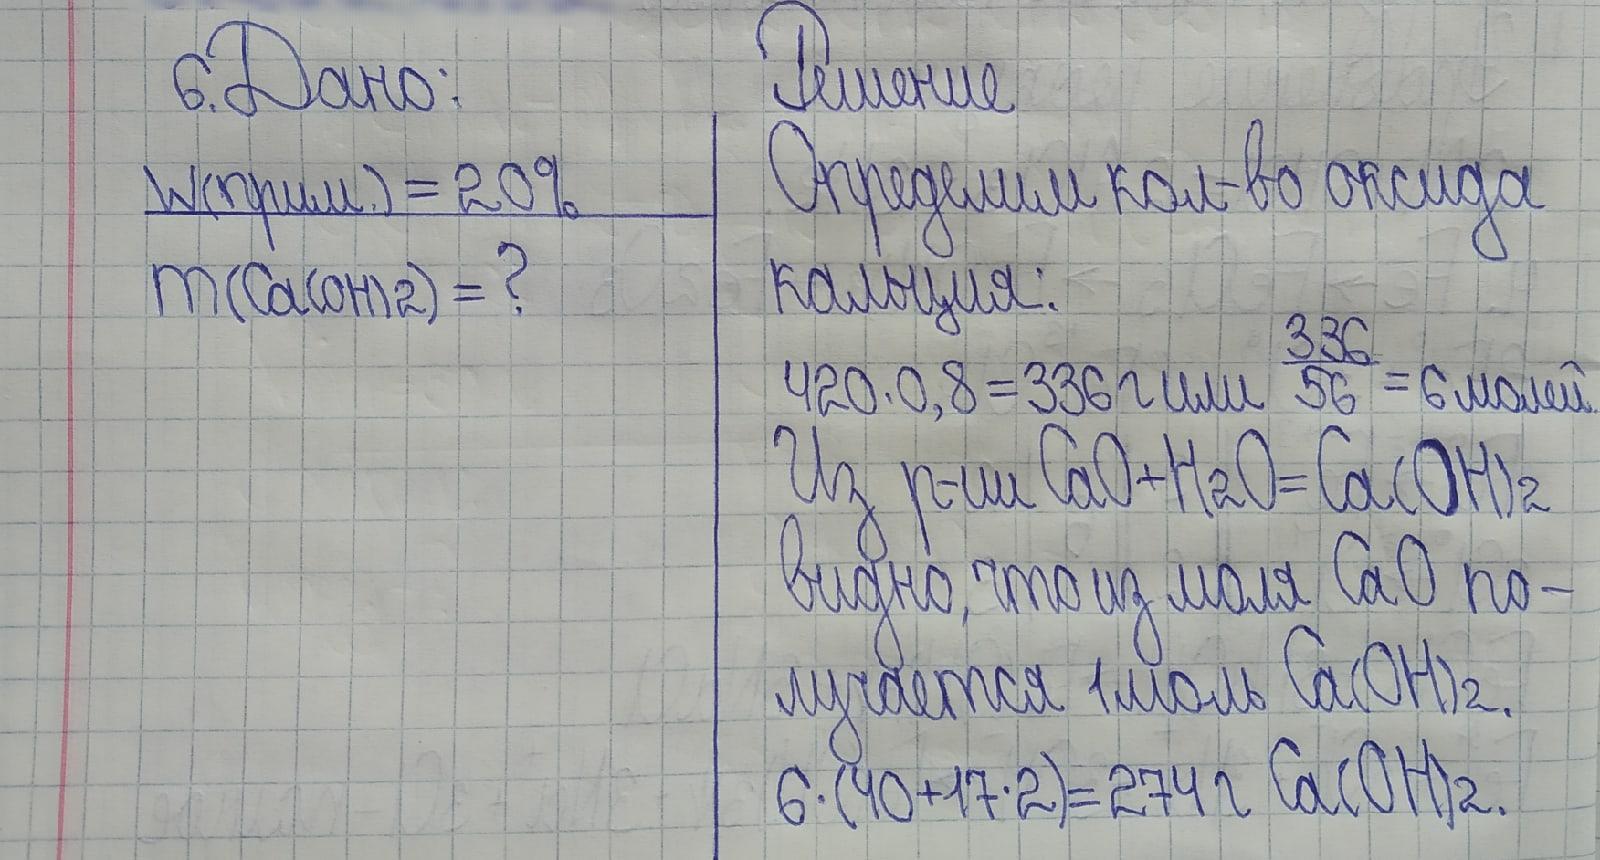 6. Дано:
W(прим.) = 20%
m(Ca(OH)2) = ?
Решение
Определим кол-во оксида
кальция:
420·0,8=336 г или 336/56 = 6 молей.
Из р-ии CaO+H2O=Ca(OH)2
видно, что из моля CaO по-
лучается 1 моль Ca(OH)2.
6·(40+17·2)=274 г Ca(OH)2.